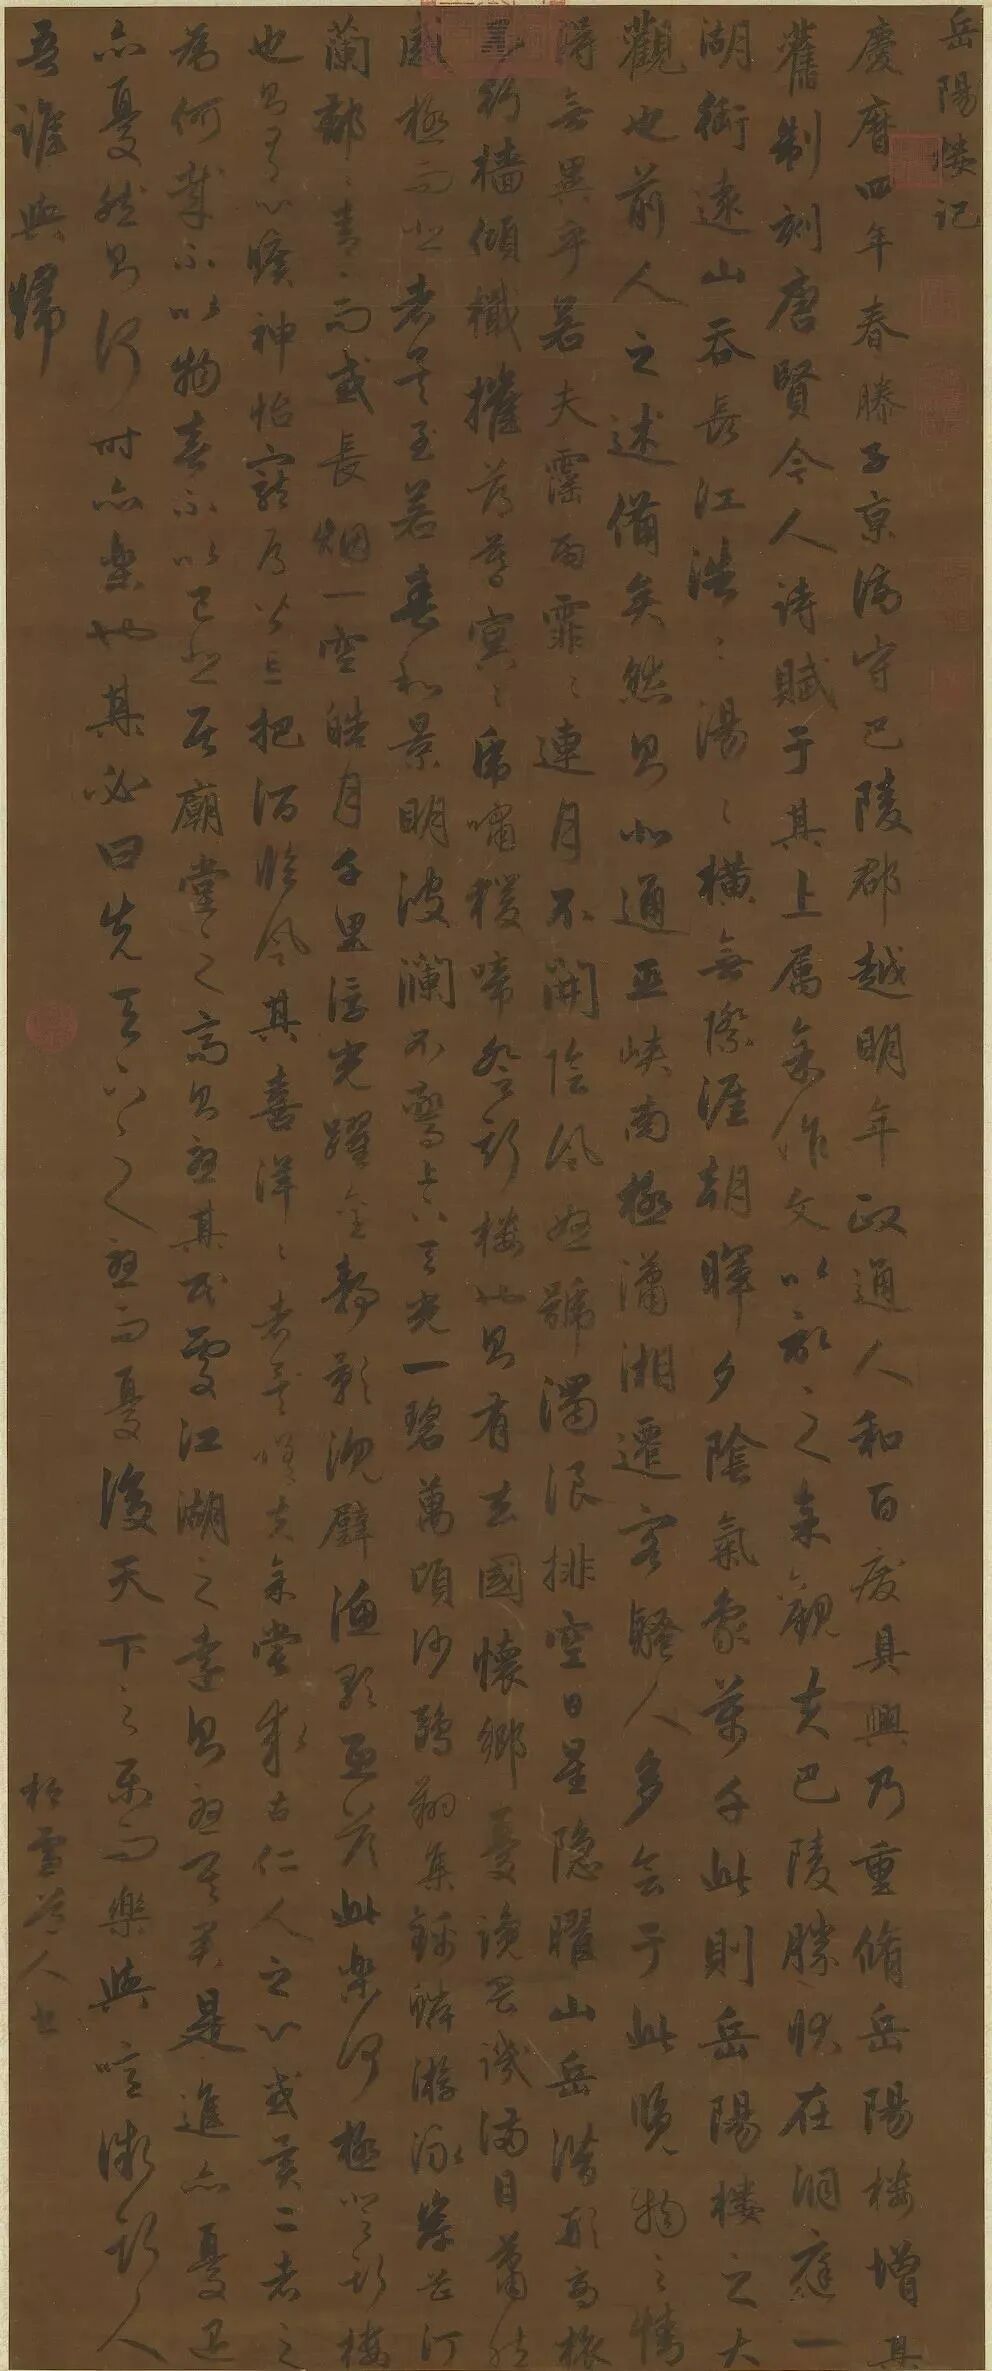 岳陽樓记
慶曆四年春滕子京謫守巴陵郡越明年政通人和百廢具興乃重脩岳陽樓增其
舊制刻唐賢今人诗賦于其上属余作文以記之余觀夫巴陵勝狀在洞庭一
湖銜遠山吞長江浩〻湯〻橫無際涯朝暉夕陰氣象萬千此則岳陽樓之大
觀也前人之述備矣然則北通巫峽南極瀟湘遷客騷人多会于此覽物之情
得無異乎若夫霪雨霏〻連月不開陰風怒號濁浪排空日星隐曜山岳潛形商旅
不行檣傾檝摧薄暮冥〻虎嘯猿啼登斯樓也則有去國懷鄉憂讒畏譏滿目蕭然
感極而悲者矣至若春和景明波瀾不驚上下天光一碧萬頃沙鷗翔集錦鱗游泳岸芷汀
蘭郁〻青〻而或長烟一空皓月千里浮光躍金靜影沉璧漁歌互答此樂何極登斯樓
也則有心曠神怡寵辱皆忘把酒臨風其喜洋〻者矣嗟夫余嘗求古仁人之心或異二者之
為何哉不以物喜不以己悲居廟堂之高則憂其民處江湖之遠則憂其君是進亦憂退
亦憂然則何时亦樂也其必曰先天下之憂而憂後天下之樂而樂與噫微斯人
吾誰與歸
松雪道人書